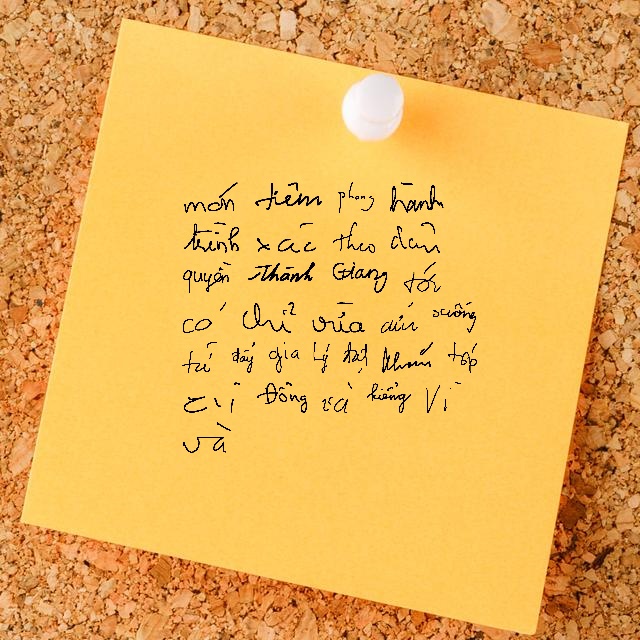 món tiêm phong hành
trình xác theo dân
quyền Thành Giang tới
có chỉ vừa xuống
tư đấy gia lý đặt khoán tốp
Đồng và kiểng Vì
và